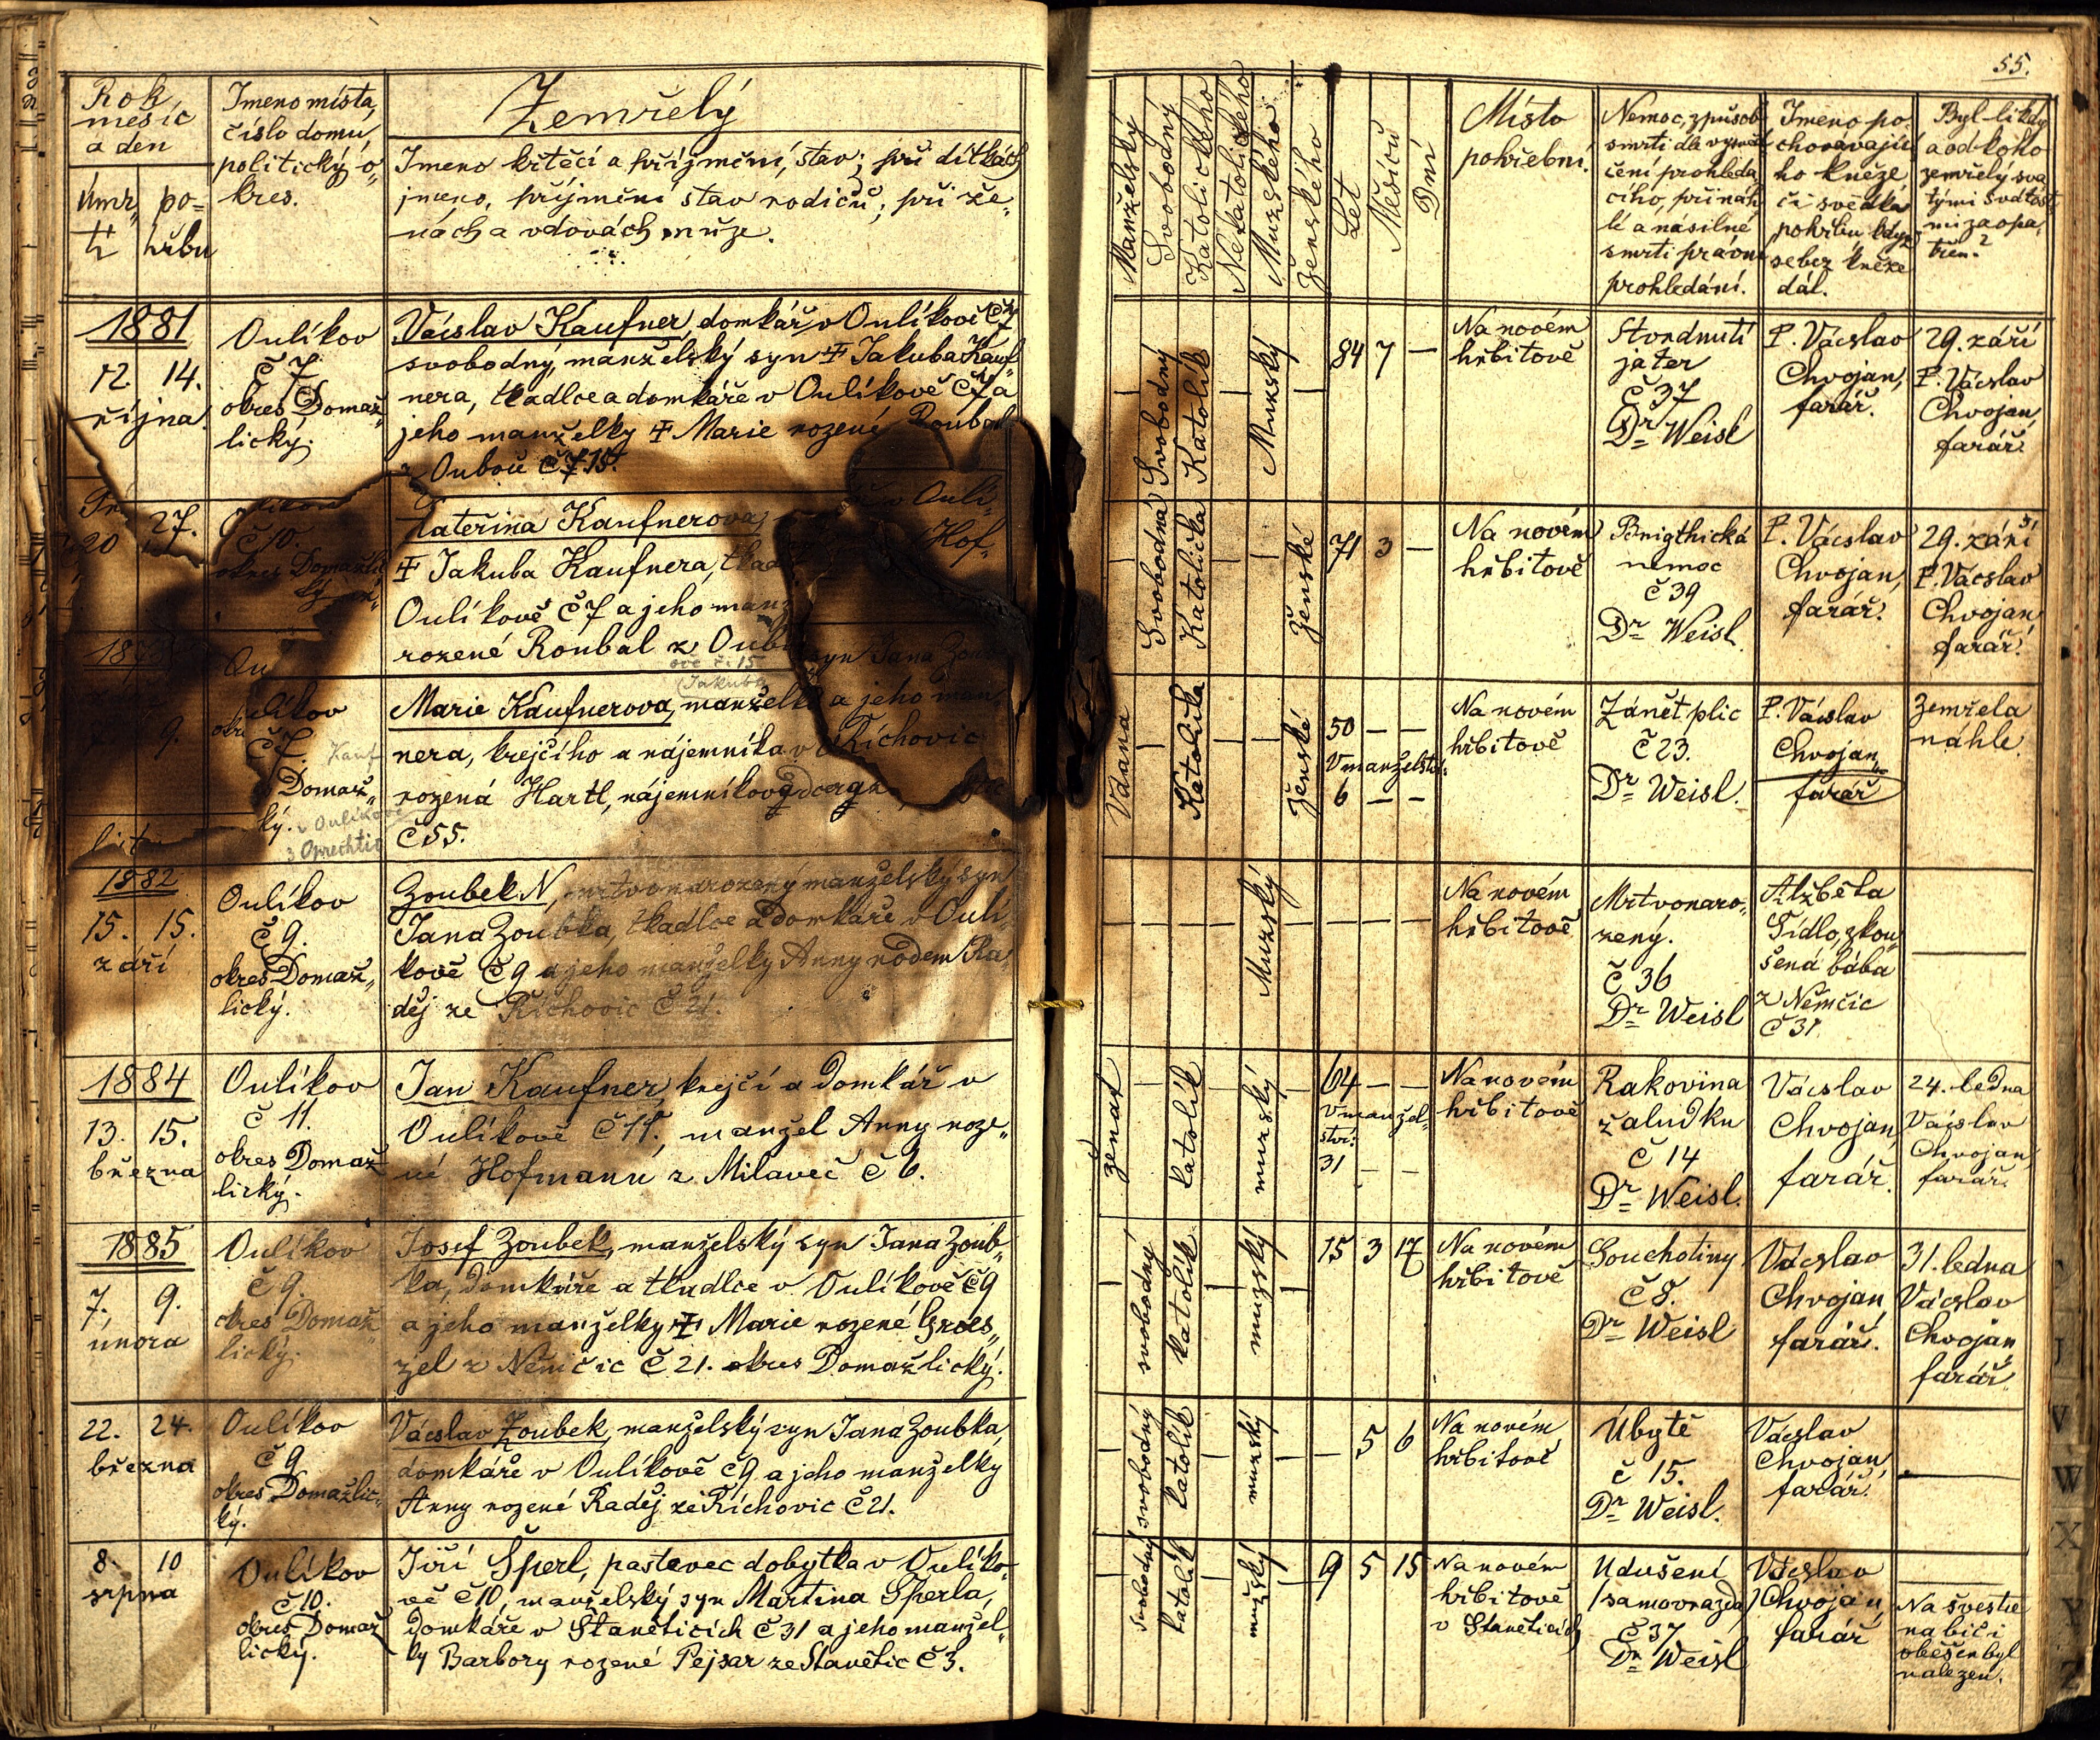 55.
Rok
měsíc
a den
úmr„
tí
po=
hřbu
Jmeno místa,
číslo domu,
politický o„
kres.
Zemřelý
Jmeno křtěcí a příjmění, stav; při dítkách
jmeno, příjmění stav rodičů; při že„
nách a vdovách muže.
Manželský
Svobodný
Katolického
Nekatolického
Mužského
Ženského
Let
Měsíců
Dní
Místo
pohřební.
Nemoc, způsob
smrti dle vysvěd
čení prohléda„
cího, při náh
lé a násilné
smrti právní
prohledání.
Jmeno po„
chovávající
ho kněze
či svědka
pohřbu když
se bez kněze
dál.
Byl-li kdy
a od koho
zemřelý sva
tými svátost
mi zaopa„
třen?
1881
12. 14.
října.
Oulíkov
č 7
okres Domaž„
lický.
Václav Kaufner, domkář v Oulíkově č 7
svobodný, manželský syn ‡ Jakuba Kauf
nera, tkadlce a domkáře v Oulíkově č 7 a
jeho manželky ‡ Marie rozené Roubal
z Oubočí č 15.
Svobodný
Katolík
Mužský
84 7 —
Na novém
hřbitově
Stvrdnutí
jater
č 37
Dr Weisl
P. Václav
Chvojan,
farář.
29. září
P. Václav
Chvojan,
farář.
27.
20
č 10.
okres Domažlic
ký
Kateřina Kaufnerova,
‡ Jakuba Kaufnera, tkad
Oulíkově č 7 a jeho manž
rozené Roubal z Oub
v Oulí-
Hof-
Svobodná
Katolička
Ženské
71 3 —
Na novém
hřbitově
Brigthická
nemoc
č 39
Dr Weisl.
P. Václav
Chvojan,
farář.
29. září
P. Václav
Chvojan,
farář.
9.
Ou
líkov
č 7.
Domaž„
ký.
Kauf
v Oulíkově
ově č. 15
Jakuba
syn Jana Zou
Marie Kaufnerova, manželka a jeho man
nera, krejčího a nájemníka v Říchovic
rozená Hartl, nájemníkov
č 55.
Vdaná
Katolička
Ženské
50 — —
V manželství:
6 — —
Na novém
hřbitově
Zánět plic
č 23.
Dr Weisl.
P. Václav
Chvojan„
farář
Zemřela
náhle.
1882
15. 15.
září
Oulíkov
č 9.
okres Domaž„
lický.
Zoubek N, mrtvonarozený manželský syn
Jana Zoubka, tkadlce a domkáře v Oulí
kově č 9 a jeho manželky Anny rodem Ra„
děj ze Říchovic č 21.
Mužský
Na novém
hřbitově
Mrtvonaro„
zený.
č 36
Dr Weisl
Alžběta
Tidlo, zkou
šená bába
z Němčic
č 31
1884
13. 15.
března
Oulíkov
č 11.
okres Domaž
lický.
Jan Kaufner, krejčí a domkář v
Oulíkově č 11., manžel Anny roze„
né Hofmann z Milaveč č 6.
ženat
katolík
mužský
64 — —
V manžel„
ství:
31 — —
Na novém
hřbitově
Rakovina
žaludku
č 14
Dr Weisl.
Václav
Chvojan,
farář.
24. ledna
Václav
Chvojan,
farář.
1885
7. 9.
února
Oulíkov
č 9.
okres Domaž„
lický.
Josef Zoubek, manželský syn Jana Zoub„
ka, domkáře a tkadlce v Oulíkově č 9
a jeho manželky ‡ Marie rozené Groes„
zel z Němčic č 21. okres Domažlický.
svobodný
katolík
mužský
15 3 17
Na novém
hřbitově
Souchotiny
č 8.
Dr Weisl
Václav
Chvojan,
farář.
31. ledna
Václav
Chvojan
farář.
22. 24.
března
Oulíkov
č 9
okres Domažlic„
ký.
Václav Zoubek, manželský syn Jana Zoubka,
domkáře v Oulíkově č 9 a jeho manželky
Anny rozené Raděj ze Říchovic č 21.
svobodný
katolík
mužský
— 5 6
Na novém
hřbitově
Úbytě
č 15.
Dr Weisl.
Václav
Chvojan,
farář.
8. 10
srpna
Oulíkov
č 10.
okres Domaž
lický.
Jiří Šperl, pastevec dobytka v Oulíko-
vě č 10, manželský syn Martina Šperla,
domkáře v Stanětících č 31 a jeho manžel„
ky Barbory rozené Pejsar ze Stanětic č 3.
svobodný
katolík
mužský
19 5 15
Na novém
hřbitově
v Stanětících
Udušení
/samovražda/
č 37
Dr Weisl
Václav
Chvojan,
farář
Na švestce
na biči
oběšen byl
nalezen.